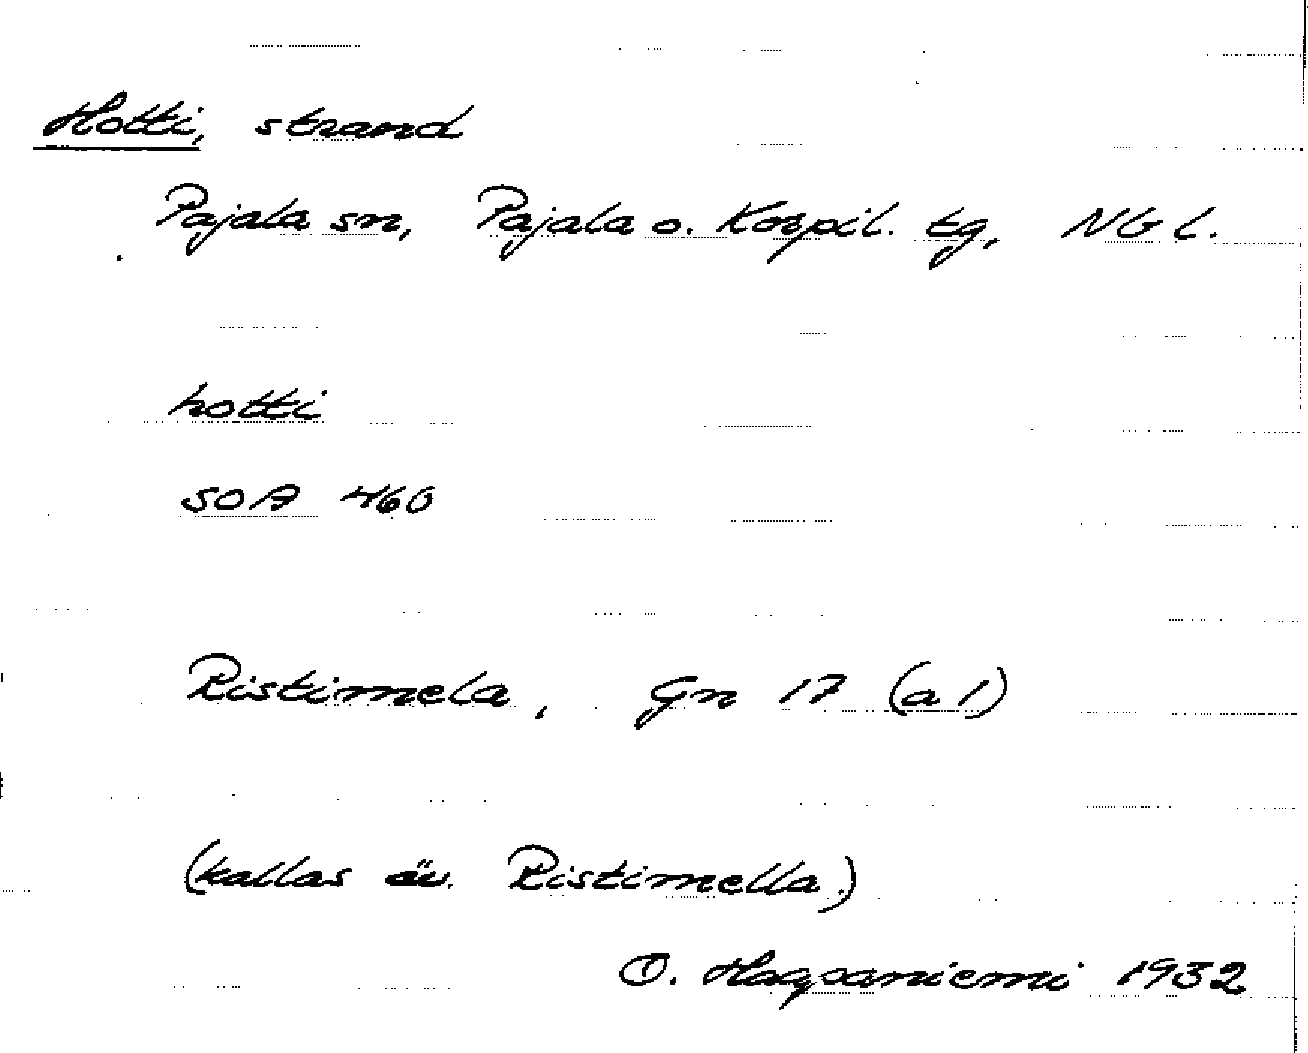 Hotti, strand
Pajala sn, Pajala o. Korpil. tg, NGL.
hotti
SOA 460
Ristimela, Gn 17 (a1)
(kallas äv. Ristimella)
O. Haapaniemi 1932